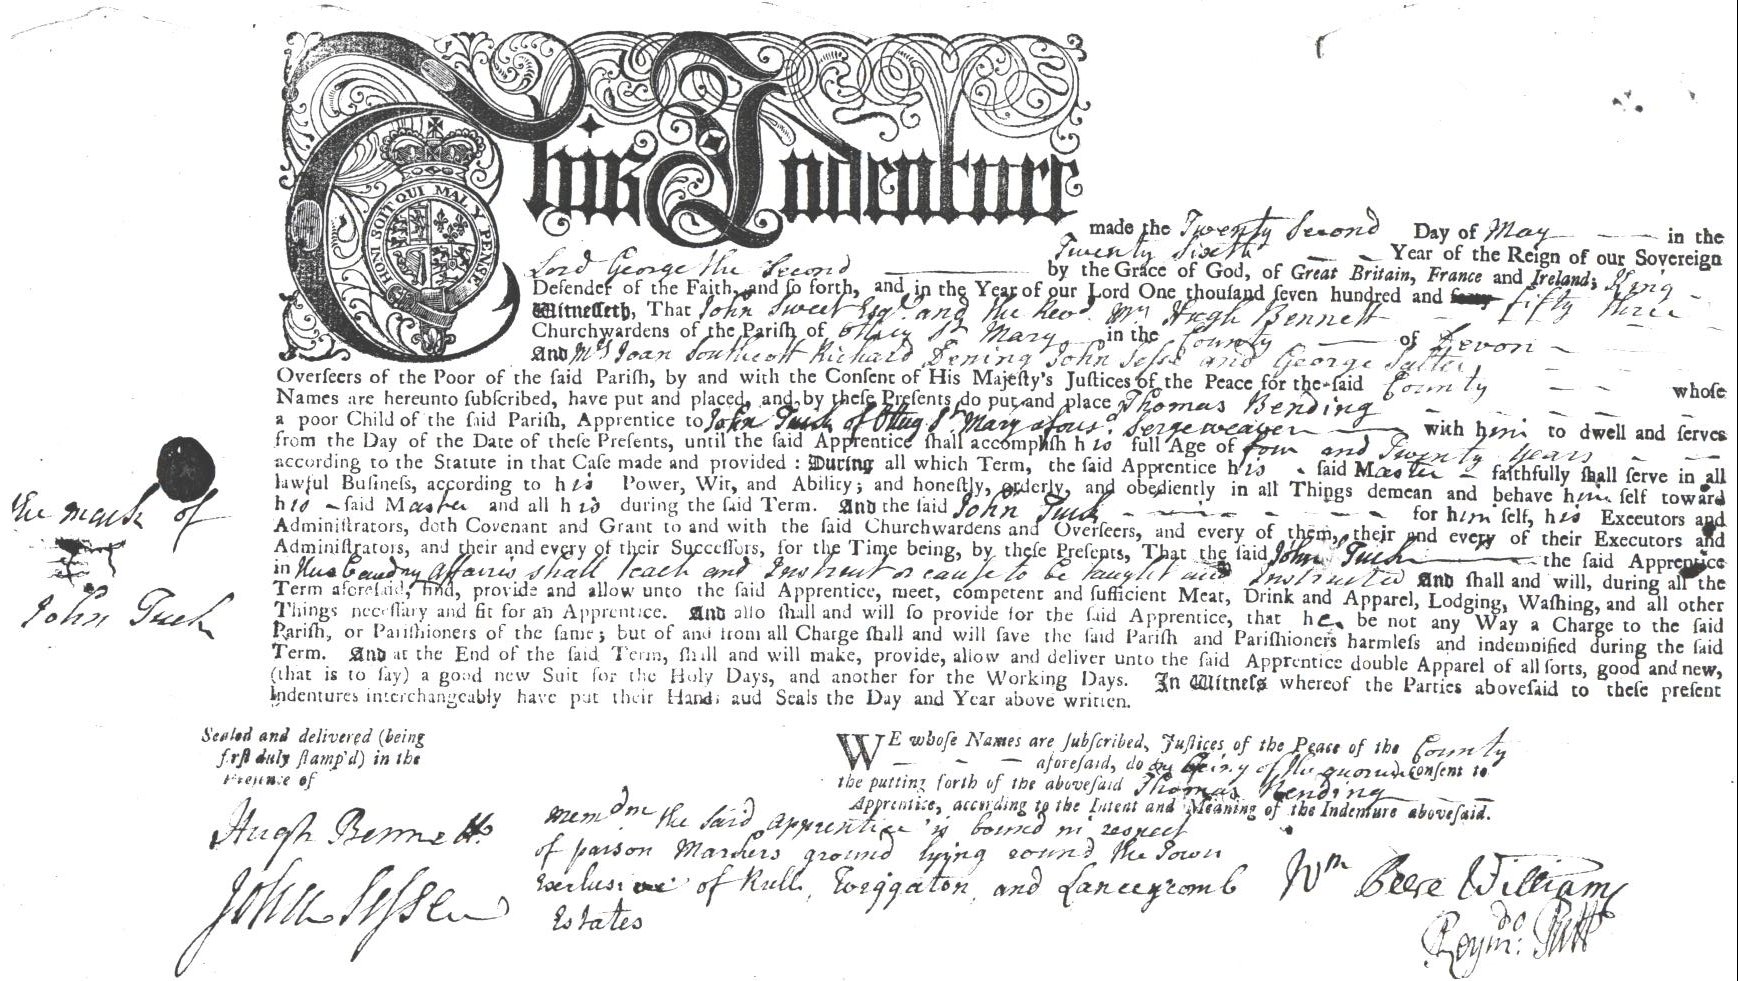 This Indenture
HONI SOIT QUI MAL Y PENSE
made the Twenty Second Day of May in the
Twenty Sixth Year of the Reign of our Sovereign
Lord George the Second by the Grace of God, of Great Britain, France and Ireland; King
Defender of the Faith, and so forth, and in the Year of our Lord One thousand seven hundred and forty fifty three
Witnesseth, That John Sweet Esqr. and the Revd. Mr Hugh Bennett
Churchwardens of the Parish of Ottery St Mary in the County of Devon
And Mrs Joan Southcott Richard Dening John and George Salter
Overseers of the Poor of the said Parish, by and with the Consent of His Majesty's Justices of the Peace for the said County whose
Names are hereunto subscribed, have put and placed, and by these Presents do put and place Thomas Bending
a poor Child of the said Parish, Apprentice to John Tuck of Ottery St Mary aforesd. Sergeweaver with him to dwell and serves
from the Day of the Date of these Presents, until the said Apprentice shall accomplish his full Age of four and Twenty Years
according to the Statute in that Case made and provided: During all which Term, the said Apprentice his said Master faithfully shall serve in all
lawful Business, according to his Power, Wit, and Ability; and honestly, orderly, and obediently in all Things demean and behave himself toward
his said Master and all his during the said Term. And the said John Tuck for himself, his Executors and
Administrators, doth Covenant and Grant to and with the said Churchwardens and Overseers, and every of them, their and every of their Executors and
Administrators, and their and every of their Successors, for the Time being, by these Presents, That the said John Tuck the said Apprentice
in Husbandry Affairs shall teach and Instruct or cause to be taught and Instructed And shall and will, during all the
Term aforesaid, find, provide and allow unto the said Apprentice, meet, competent and sufficient Meat, Drink and Apparel, Lodging, Washing, and all other
Things necessary and fit for an Apprentice. And also shall and will so provide for the said Apprentice, that he be not any Way a Charge to the said
Parish, or Parishioners of the same; but of and from all Charge shall and will save the said Parish and Parishioners harmless and indemnified during the said
Term. And at the End of the said Term, shall and will make, provide, allow and deliver unto the said Apprentice double Apparel of all sorts, good and new,
(that is to say) a good new Suit for the Holy Days, and another for the Working Days. In Witness whereof the Parties abovesaid to these present
Indentures interchangeably have put their Hands and Seals the Day and Year above written.
the mark of
John Tuck
Sealed and delivered (being
first duly stamp'd) in the
Presence of
Hugh Bennett
John
WE whose Names are subscribed, Justices of the Peace of the County
aforesaid, do being of the quorum Consent to
the putting forth of the abovesaid Thomas Bending
Apprentice, according to the Intent and Meaning of the Indenture abovesaid.
Memdm the said apprentice is bound in respect
of parson Markers ground lying round the Town
Exclusive of Rull, and Estates
Wm Beere William
Reymd: Putt